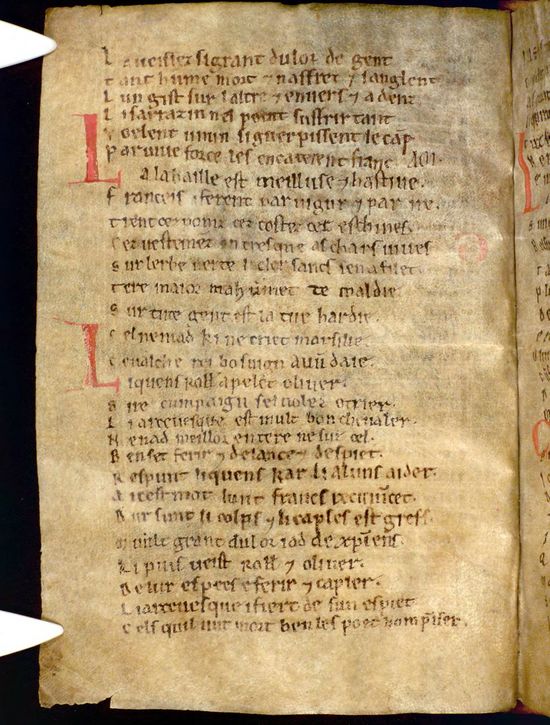 La ueist si grant dulor de gent
tant hume mort ⁊ nasfret ⁊ sanglent
Lun gist sur laltre ⁊ enuers ⁊ adenz
Li sarrazin nel poent susfrir tant
Voelent u nun si guerpissent le cap
Par uiue force les encacerent franc AOI.
La bataille est merueilluse ⁊ hastiue.
franceis i ferent par uigur ⁊ par ire
trenchent cez poinz cez costez cez eschines.
Cez uestemenz entresque as chars uiues
Sur lerbe uerte li cler sancs sen afilet.
tere maior mahūmet te maldie.
Sur tute gent est la tue hardie.
Cel nen i ad ki ne criet marsilie.
Ceualche rei bosuign auū daie.
Li quens Roll apelet oliuer.
Sire cumpaign sel uolez otrier.
Li arceuesque est mult bon cheualer.
Nen ad meillor en tere ne suz cel.
Ben set ferir ⁊ de lance ⁊ despiet.
Respunt li quens kar li aluns aider.
A icest mot lunt francs recumēcet.
Dur sunt li colps ⁊ li caples est grefs.
Mult grant dulor i ad de xp̄iens.
Ki puis ueist Roll ⁊ oliuer.
De lur espees e ferir ⁊ capler.
Li arceuesque i fiert de sun espiet
Cels quil unt mort ben les poet hom p̄iser.